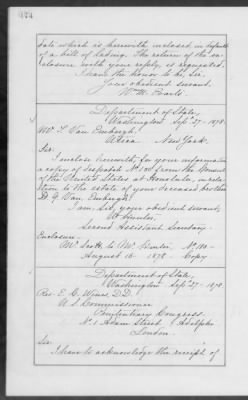 date which is herewith enclosed in default
of a bill of lading. The return of the en-
closure with your reply, is requested.
I have the honor to be, Sir,
Your obedient servant,
Department of State,
Washington Sep. 27. 1878.
Utica New York.
Sir:
I enclose herewith, for your information
a copy of dispatch No. 180 from the Consul
of the United States at Honolulu, in rela-
tion to the estate of your deceased brother
D. G. Van Emburgh.
I am, Sir, your obedient servant,
W. Hunter,
Second Assistant Secretary
Enclosure.
Mr. Scott to Mr. Hunter No. 180
August 16 1878 Copy
Department of State,
Washington Sep. 27. 1878.
Rev. E. C. Wines, D.D.
U.S. Commissioner
Penitentiary Congress.
No. 1 Adam Street Adelphi
London.
Sir:
I have to acknowledge the receipt of